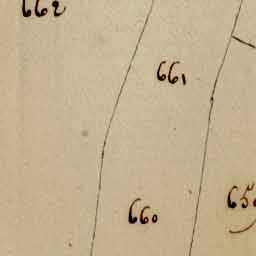 662
661
660